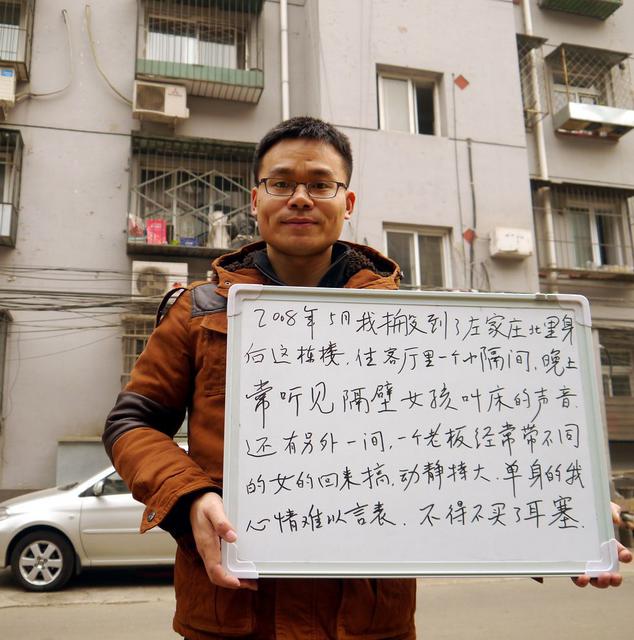 2008年5月我搬到了左家庄北里身
后这栋楼，住客厅里一个小隔间，晚上
常听见隔壁女孩叫床的声音.
还有另外一间，一个老板经常带不同
的女的回来搞，动静持大.单身的我
心情难以言表.不得不买了耳塞.